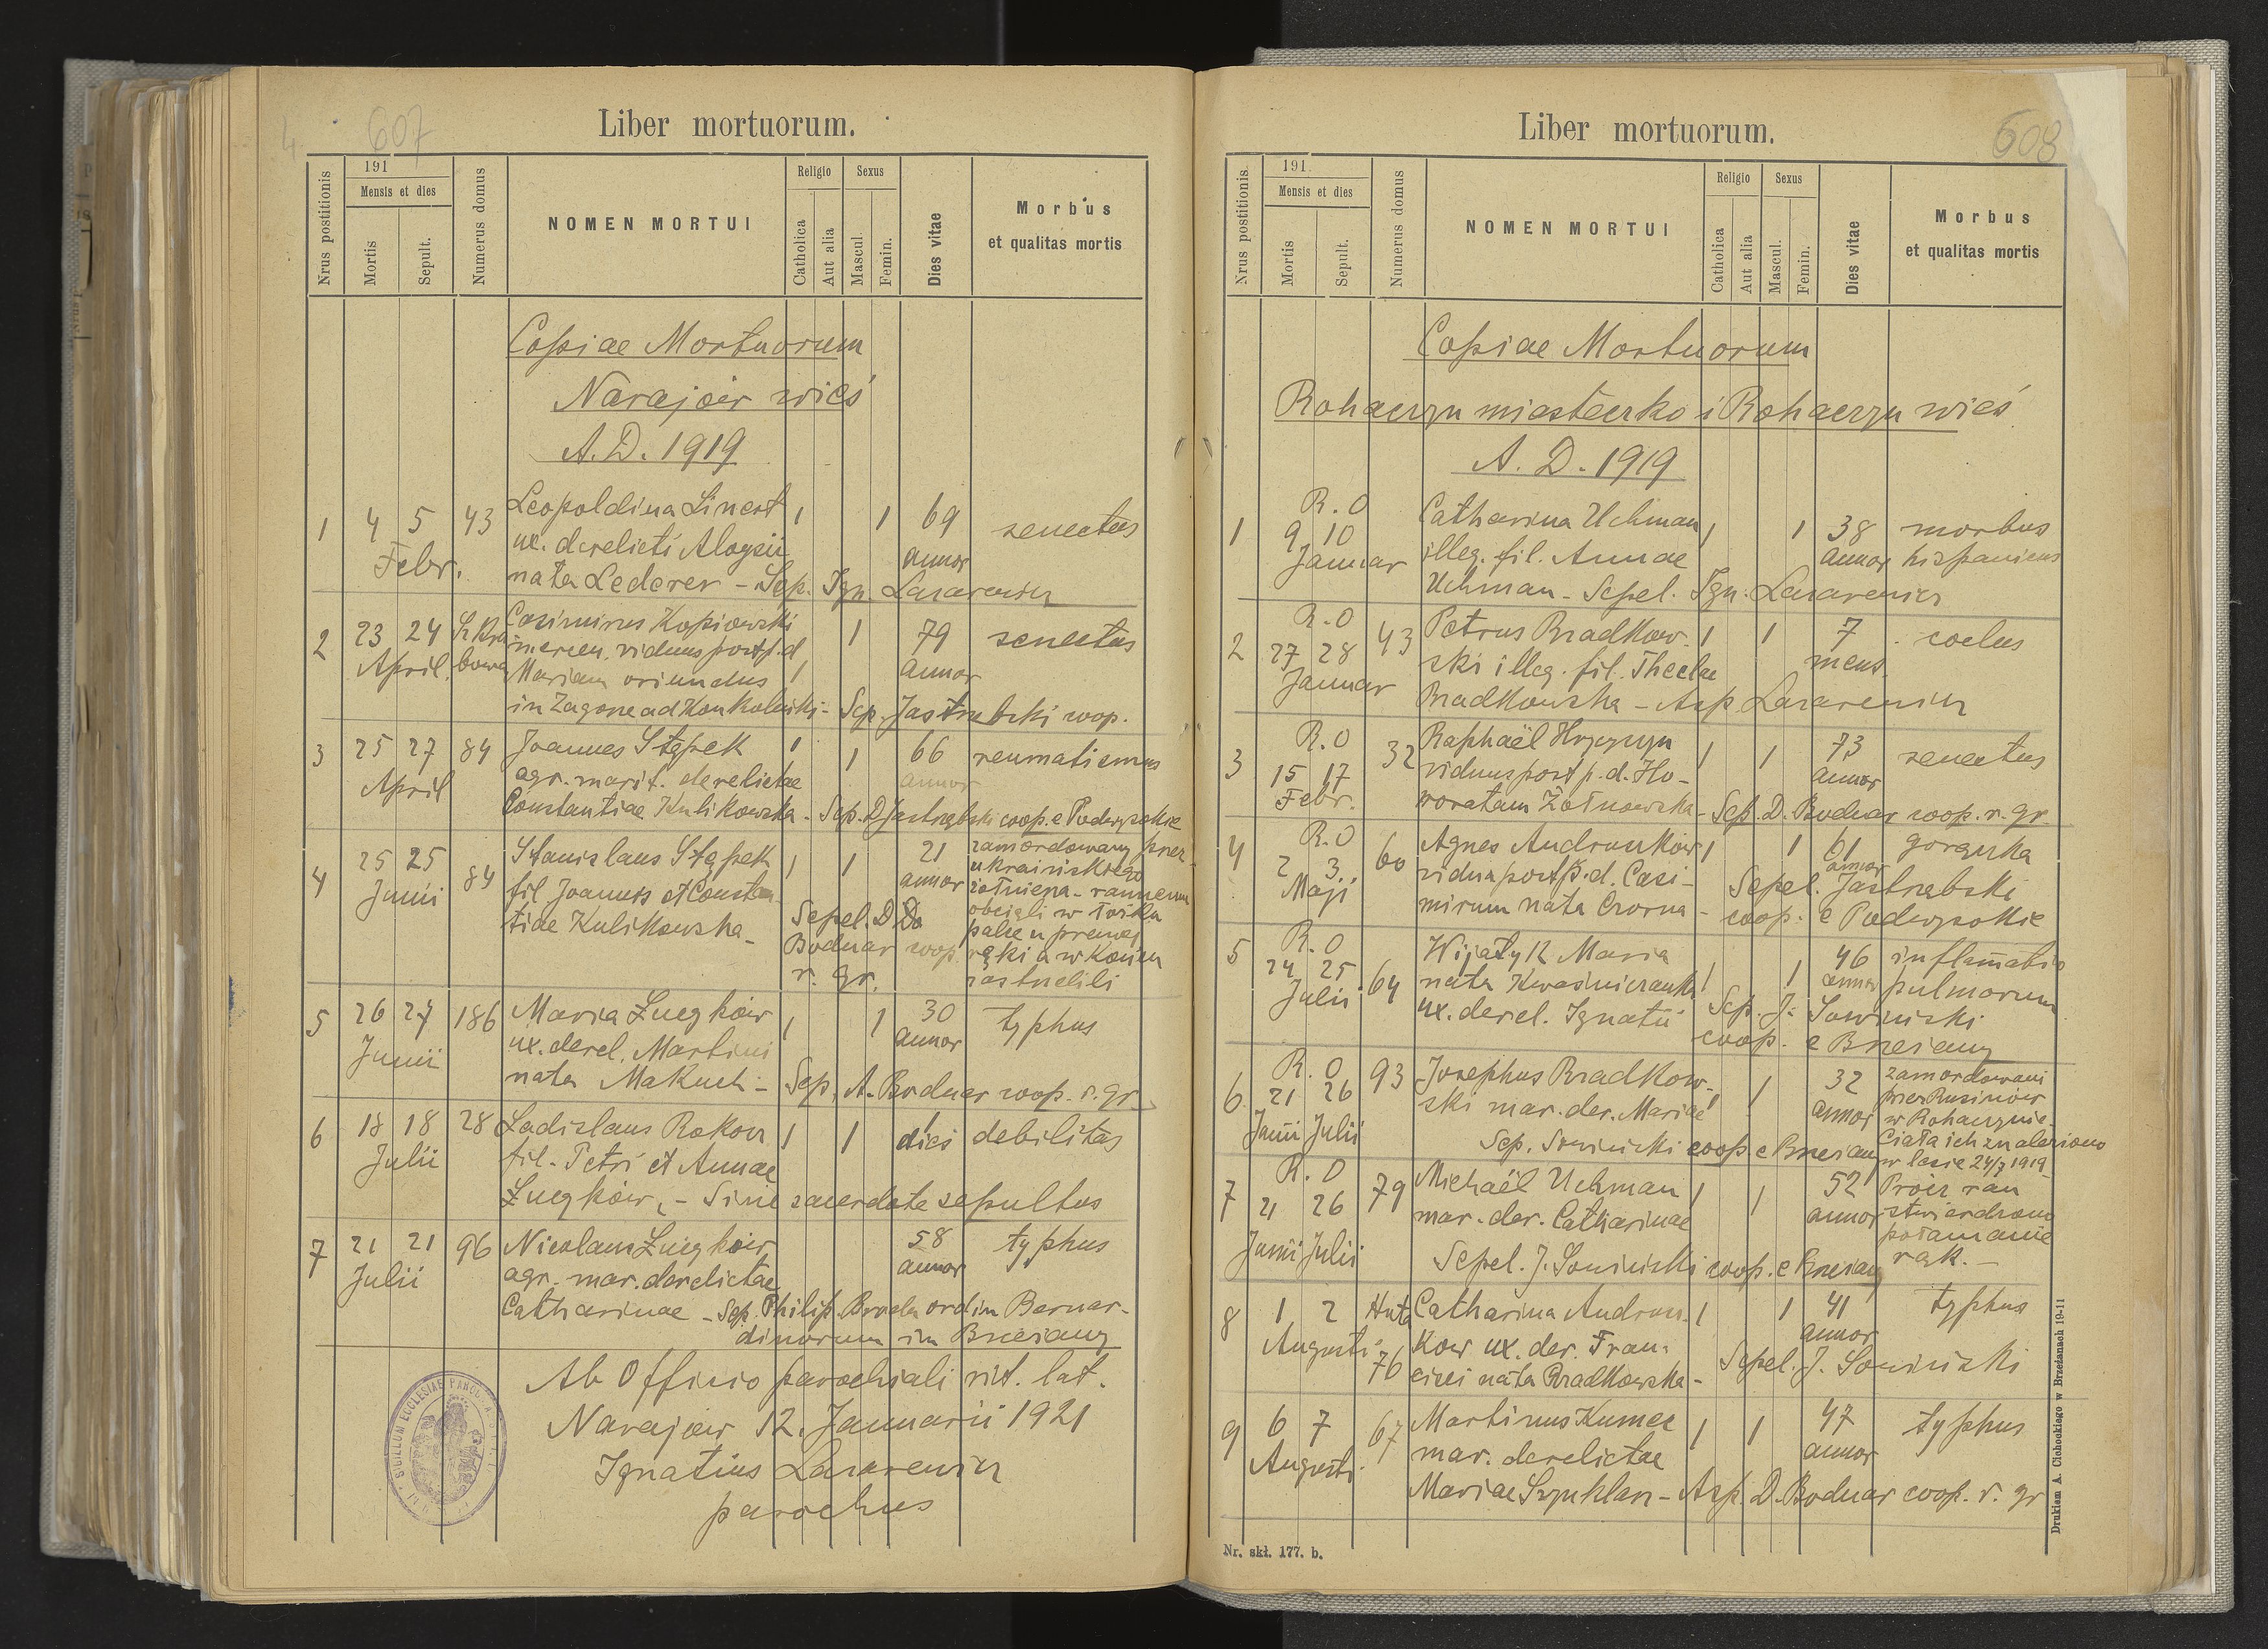 607
Liber mortuorum.
Nrus postitionis
191
Mensis et dies
Mortis
Sepult.
Numerus domus
NOMEN MORTUI
Religio
Catholica
Aut alia
Sexus
Mascul.
Femin.
Dies vitae
Morbus
et qualitas mortis
Copiae Mortuorum
Narajów wieś
A.D. 1919
1 4 5 43 Leopoldina Linert 1 1 69 senectus
Febr. ux. derelicti Aloysii annor
nata Lederer - Sep. Ign. Lazarewicz
2 23 24 Casimirus Kopiowski 1 79 senectus
April. viduus post p. d. annor
Mariam oriundus 1
in Zagone ad - Sep. Jastrzebski coop.
3 25 27 84 Joannes Stępek 1 1 66 reumatismus
April agr. marit. derelictae annor
Constantiae Kulikowska - Sep. D Jastrzębski coop. e Podwysokie
4 25 25 84 Stanislaus Stępek 1 1 21 zamordowany przez
Junii fil. Joannis et Constan- annor ukraińskiego
tiae Kulikowska - żołnierza - rannemu
Sepel. D. obcięli w łóżku
Bodnar coop. palce u prawej
r. gr. ręki a w końcu
zastrzelili
5 26 27 186 Maria Zuczków 1 1 30 typhus
Junii ux. derel. Martini annor
nata Makuch - Sep. A. Bodnar coop. r. gr.
6 18 18 28 Ladislaus Rokosz 1 1 1 debilitas
Julii fil. Petri et Annae dies
Zuczków, - Sine sacerdote sepultus
7 21 21 96 Nicolaus Zuczków 58 typhus
Julii agr. mar. derelictae annor
Catharinae - Sep. Philip. ordin Bernar-
dinorum in Brzeżany
Ab Officio parochiali rit. lat.
Narajów 12. Januarii 1921
Ignatius Lazarewicz
parochus
608
Liber mortuorum.
Nrus postitionis
191
Mensis et dies
Mortis
Sepult.
Numerus domus
NOMEN MORTUI
Religio
Catholica
Aut alia
Sexus
Mascul.
Femin.
Dies vitae
Morbus
et qualitas mortis
Copiae Mortuorum
Rohaczyn miasteczko i Rohaczyn wieś
A. D. 1919
R. O
1 9 10 Catharina Uchman 1 1 38 morbus
Januar illeg. fil. Annae annor hispanicus
Uchman - Sepel. Ign. Lazarewicz
R. O
2 27 28 43 Petrus Bradkow- 1 1 7
Januar ski illeg. fil. Theclae mens.
Bradkowska - Asp. Lazarewicz
R. O
3 15 17 32 Raphaël Hryczyn 1 1 73 senectus
Febr. viduus post p. d. Ho- annor
noratam Żołnowska - Sep. D. Bodnar coop. r. gr.
R. O
4 2 3. 60 Agnes Andrunków 1 1 61 gorączka
Maji vidua post p. d. Casi- annor
mirum nata Czorna - Sepel. Jastrzebski
coop. e Podwysokie
R. O
5 24 25 64 Wijatyk Maria 1 1 46 inflamatio
Julii nata Kwaśniczanka annor pulmorum
ux. derel. Ignatii Sep. J. Sowiński
coop. e Brzeżany
R. O
6 21 26 93 Josephus Bradkow- 1 1 32 zamordowani
Junii Julii ski mar. der. Mariae annor przez Rusinów
w Rohaczynie.
Sep. Sowiński coop e Brzeżany Ciała ich znaleziono
w lesie 24/7 1919
R. O
7 21 26 79 Michaël Uchman 1 1 52 Prócz ran
Junii Julii mar. der. Catharinae annor stwierdzono
połamanie
Sepel. J. Sowiński coop. e Brzeżany rąk. -
8 1 2 Huta Catharina Andrun- 1 1 41 typhus
Augusti 76 ków ux. der. Fran- annor
cisci nata Bradkowska - Sepel. J. Sowiński
9 6 7 67 Martinus Kumec 1 1 47 typhus
Augusti. mar. derelictae annor
Mariae Szpuklarz - Asp. D. Bodnar coop. r. gr
Nr. skł. 177. b.
Drukiem A. Cichockiego w Brzeżanach 19-11